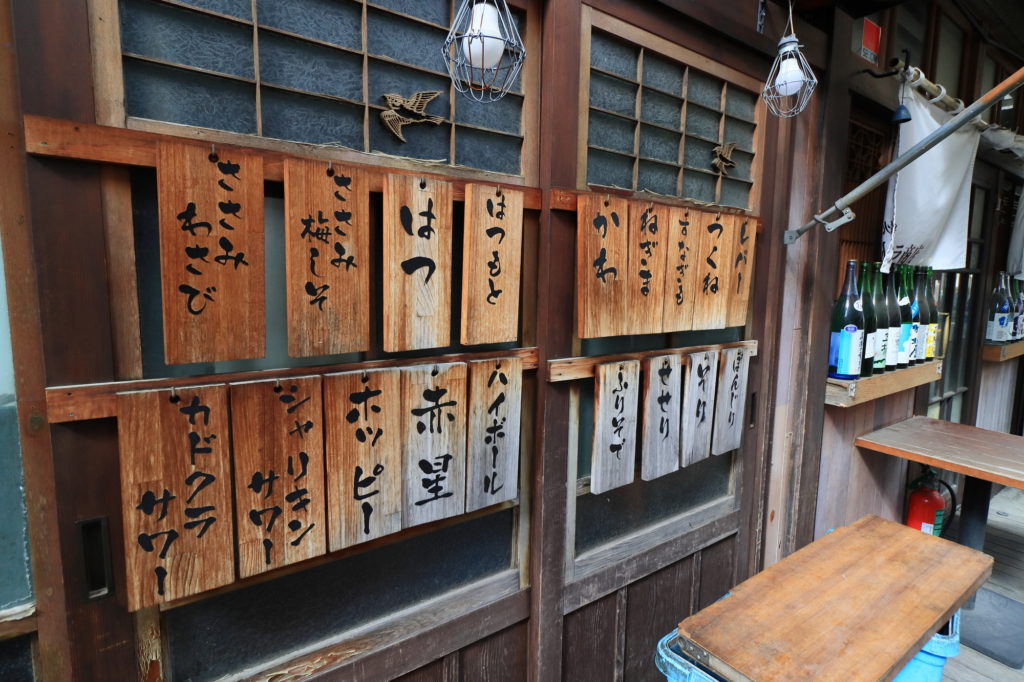 ささみ
わさび
ささみ
梅しそ
はつ
はつもと
かわ
ねぎま
すなぎも
つくね
レバー
カドクラ
サワー
シャリキン
サワー
ホッピー
赤星
ハイボール
ふりそで
せせり
そり
ぼんじり